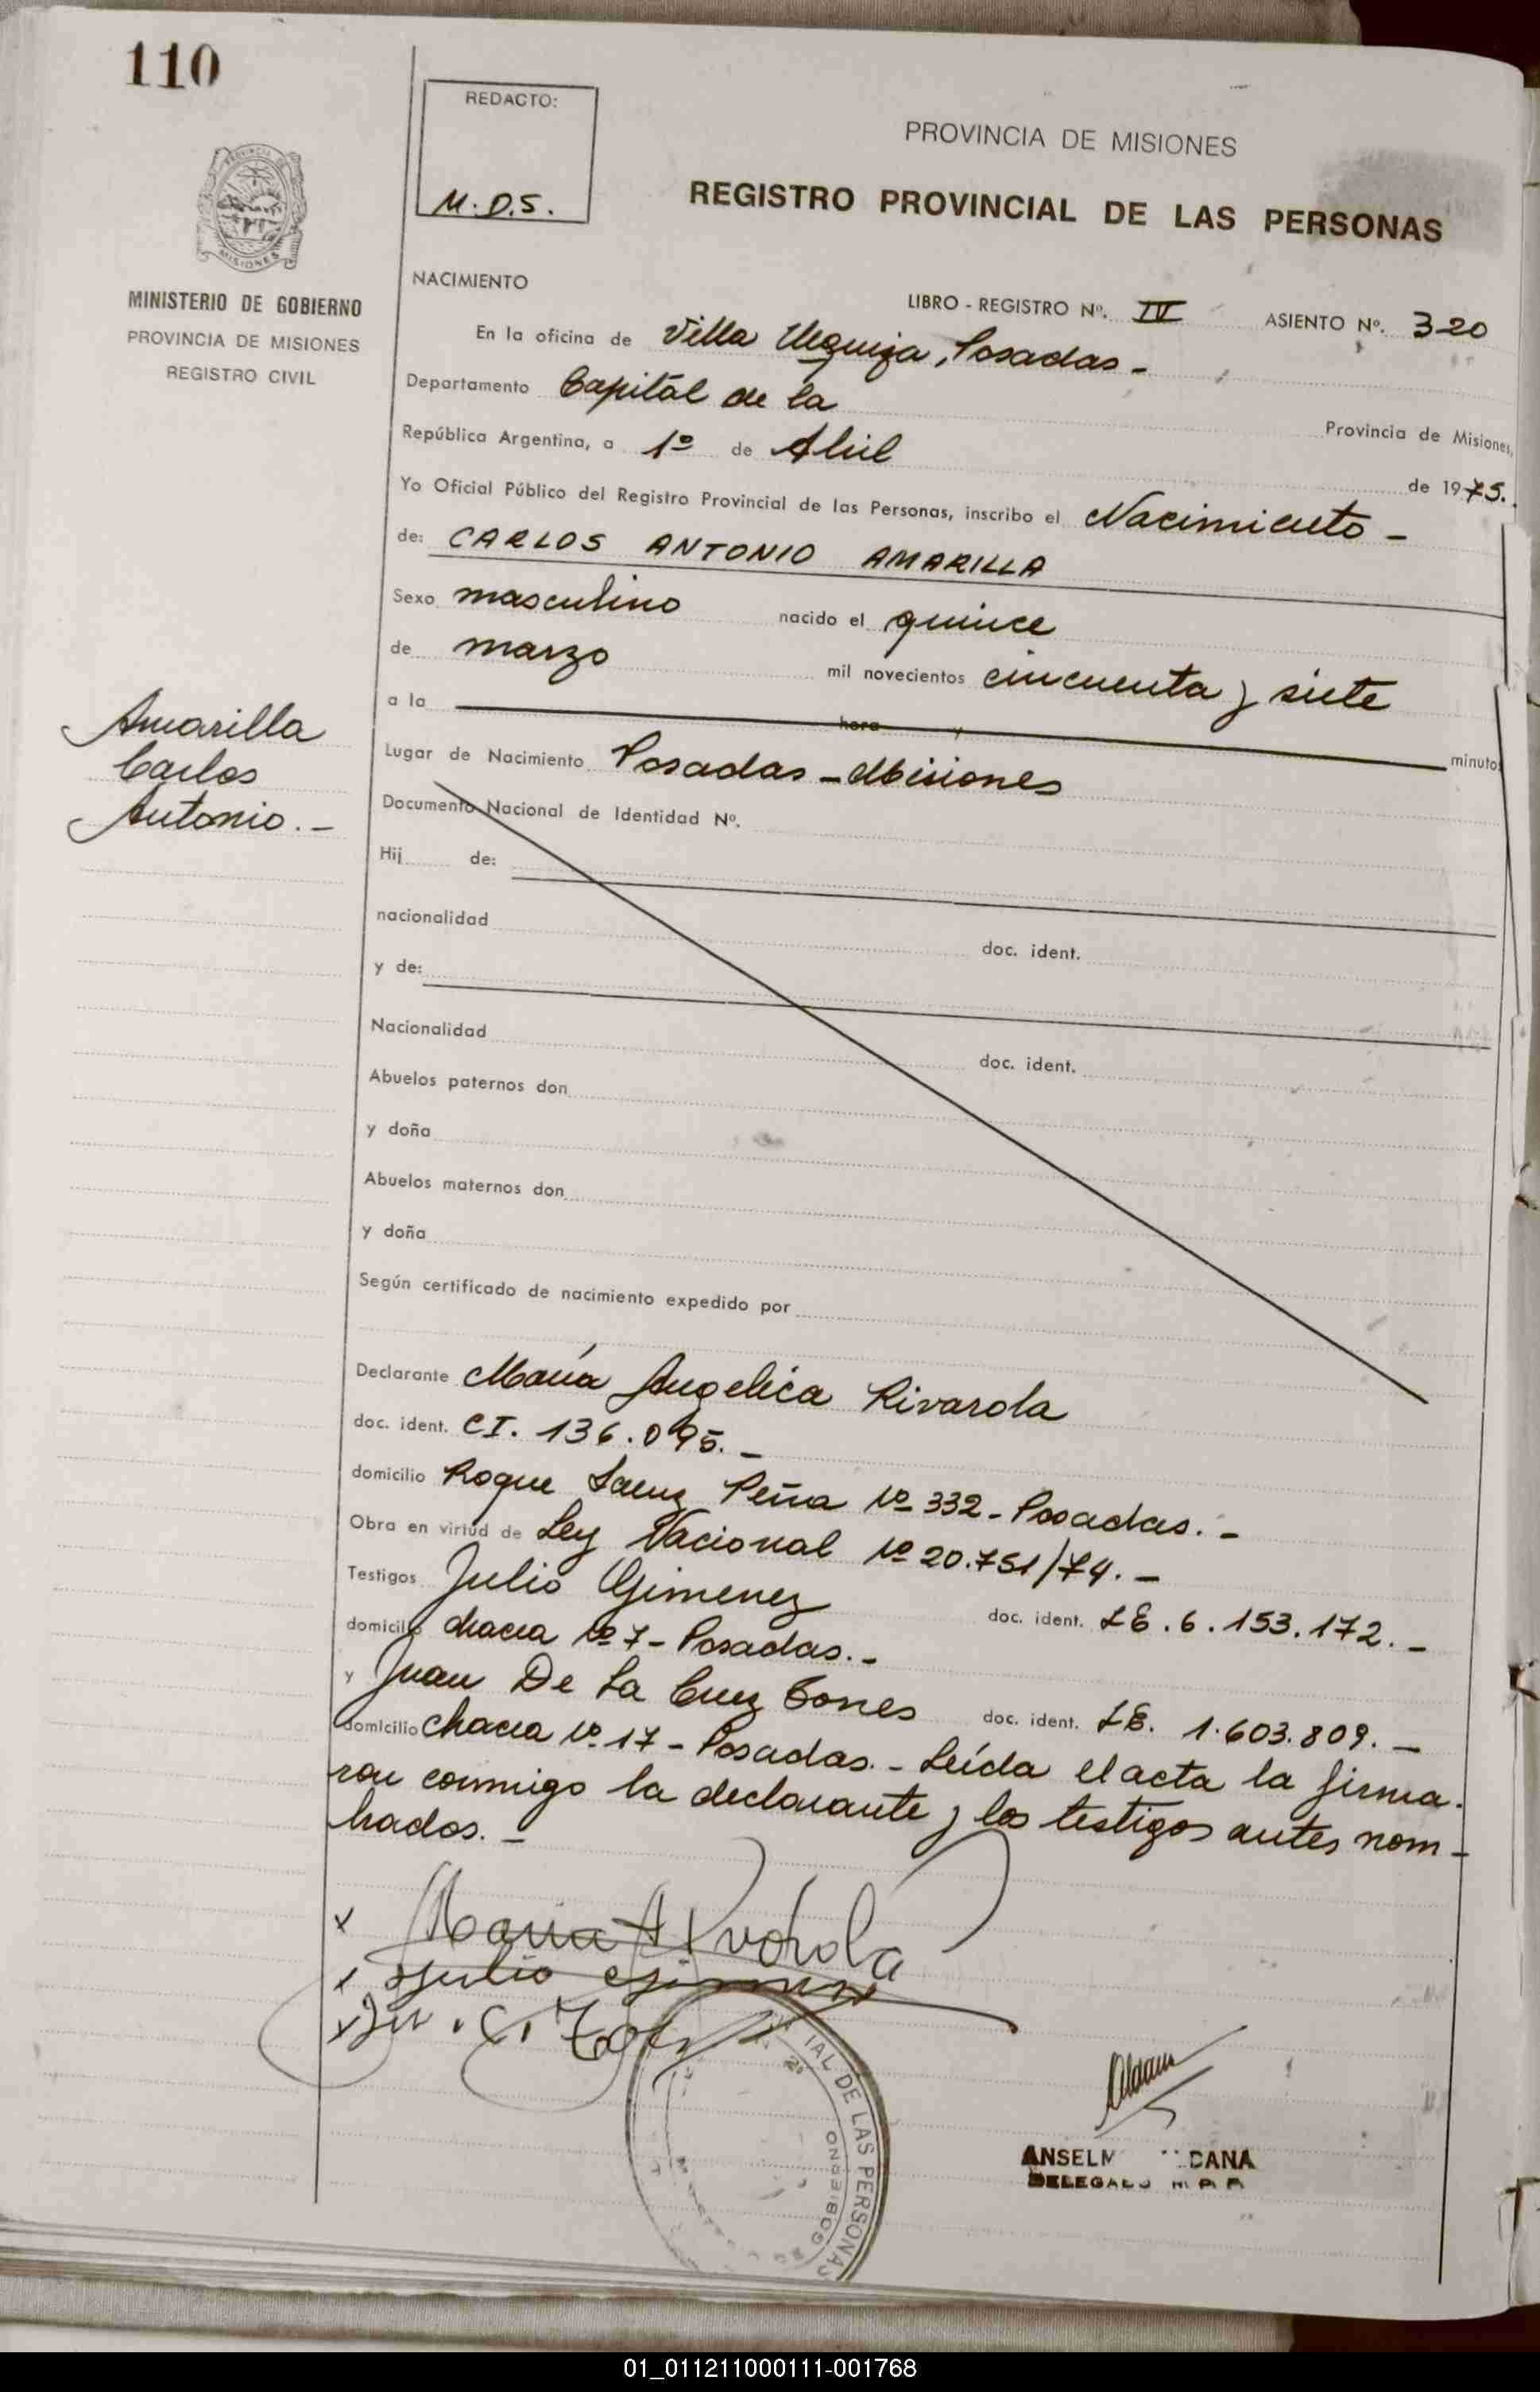 110
REDACTO:
M.D.S.
PROVINCIA DE MISIONES
REGISTRO PROVINCIAL DE LAS PERSONAS
PROVINCIA DE
MISIONES
MINISTERIO DE GOBIERNO
PROVINCIA DE MISIONES
REGISTRO CIVIL
NACIMIENTO
LIBRO - REGISTRO Nº. IV ASIENTO Nº. 320
En la oficina de Villa Urquiza, Posadas -
Departamento Capital de la Provincia de Misiones,
República Argentina, a 1º de Abril de 1975.
Yo Oficial Público del Registro Provincial de las Personas, inscribo el Nacimiento -
de: CARLOS ANTONIO AMARILLA
Sexo masculino nacido el quince
de marzo mil novecientos cincuenta y siete
a la hora y minutos
Lugar de Nacimiento Posadas - Misiones
Amarilla
Carlos
Antonio. -
Documento Nacional de Identidad Nº.
Hij de:
nacionalidad doc. ident.
y de:
Nacionalidad doc. ident.
Abuelos paternos don
y doña
Abuelos maternos don
y doña
Según certificado de nacimiento expedido por
Declarante María Angelica Rivarola
doc. ident. CI. 136.095. -
domicilio Roque Saenz Peña Nº 332 - Posadas. -
Obra en virtud de Ley Nacional Nº 20.751/74. -
Testigos Julio Gimenez doc. ident. LE. 6.153.172. -
domicilio chacra Nº 7 - Posadas. -
y Juan De La Cruz Torres doc. ident. LE. 1.603.809. -
domicilio Chacra Nº 17 - Posadas. - Leída el acta la firma-
ron conmigo la declarante y los testigos antes nom-
brados. -
x Maria A Rivarola
x Julio Gimenez
x
IAL DE LAS PERSONAS
GOBIERNO
ANSELM DANA
DELEGADO R. P. P.
01_011211000111-001768